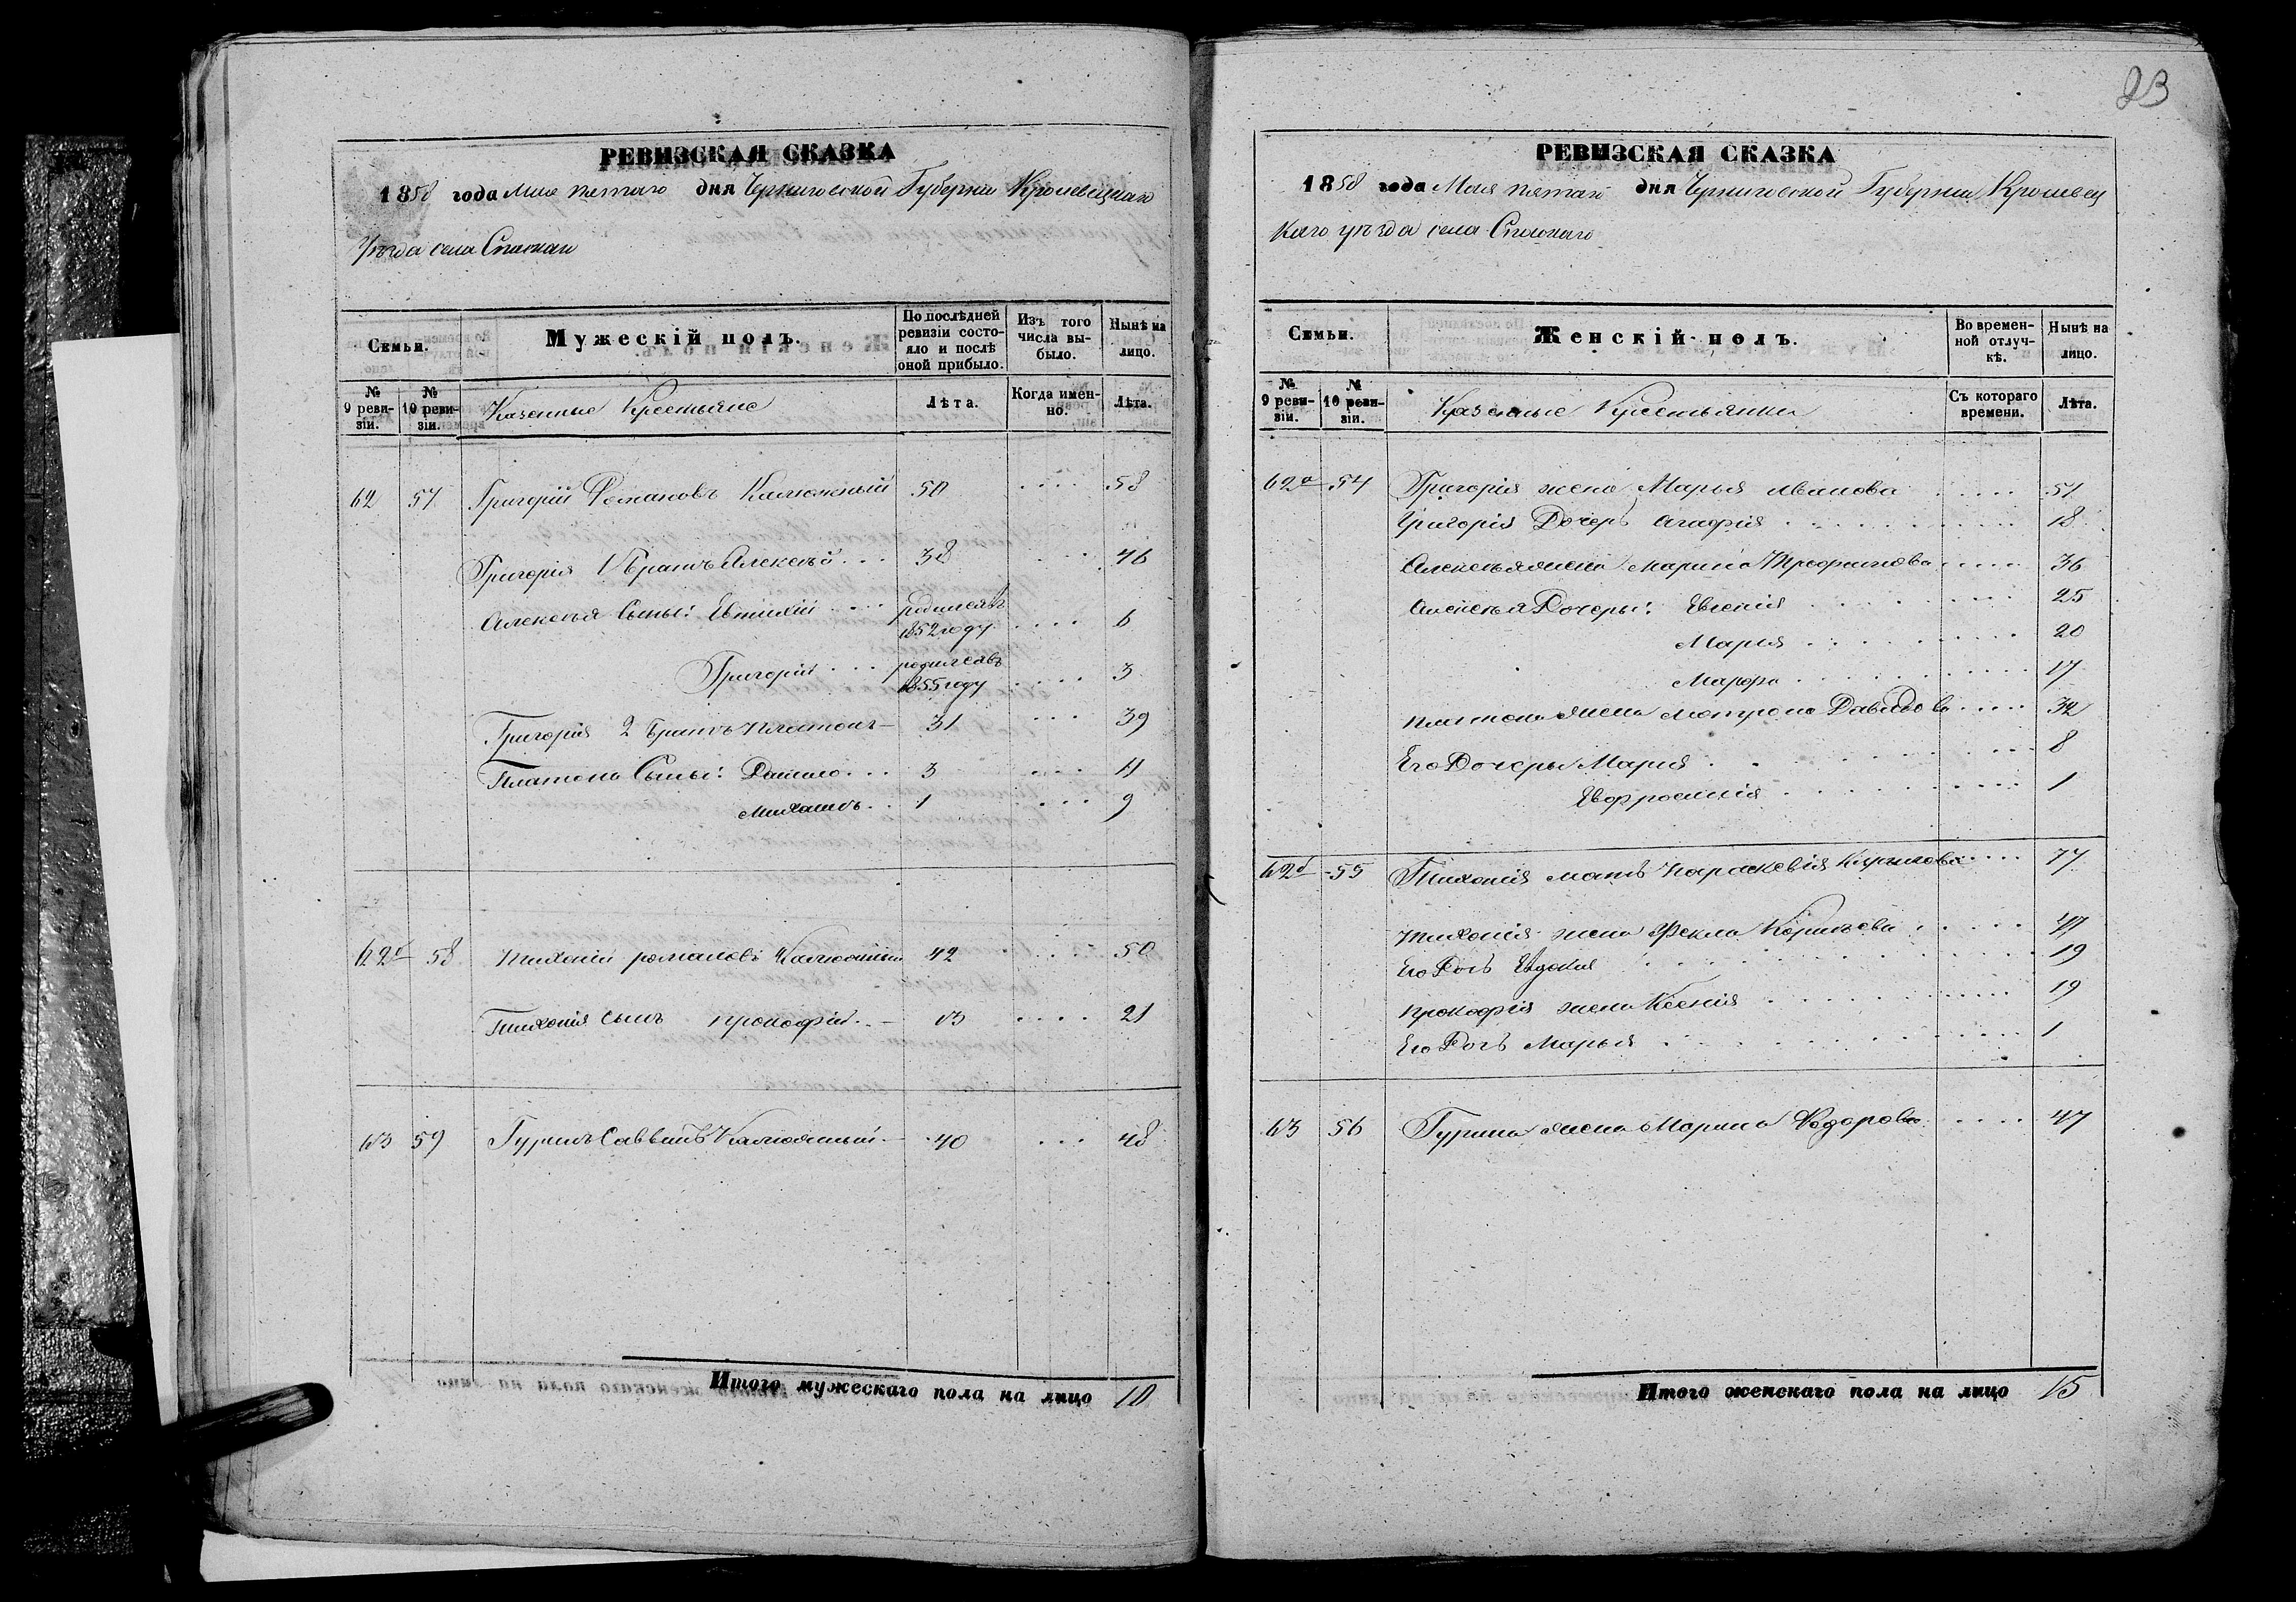 РЕВИЗСКАЯ СКАЗКА
1858 года Мая пятаго дня Черниговской Губернии Кролевецкаго
Уѣзда села Спаскаго
Семьи.
Мужескій полъ.
По послѣдней ревизіи состояло и послѣ оной прибыло.
Изъ того числа выбыло.
Нынѣ на лицо.
№ 9 ревизіи.
№ 10 ревизіи.
Казенные Крестьяне
Лѣта.
Когда именно.
Лѣта.
62 57 Григорій Романовъ Калюжный 50 .... 58
Григорія 1 Братъ Алексѣй ... 38 .... 46
Алексѣя Сыны: Евтихій .... родился въ
1852 году .... 6
Григорій ... родился въ
1855 году .... 3
Григорія 2 Братъ Платонъ — 31 ... 39
Платона Сыны: Данило ... 3 .... 11
Михаилъ .. 1 .... 9
62 58 Тихоній Романовъ Калюжный 42 .... 50
Тихонія сынъ Прокофій .. — 13 .... 21
63 59 Гуринъ Саввинъ Калюжный — 40 ... 48
Итого мужескаго пола на лицо 10
23
РЕВИЗСКАЯ СКАЗКА
1858 года Мая пятаго дня Черниговской Губернии Кролевец
каго уѣзда села Спаскаго
Семьи.
Женскій полъ.
Во временной отлучкѣ.
Нынѣ на лицо.
№ 9 ревизіи.
№ 10 ревизіи.
Казенные Крестьянки
Съ котораго времени.
Лѣта.
62а 54 Григорія жена Марья Иванова ..... 51
Григорія Дочерь Агафія ..... 18
Алексѣя жена Марина Трофимова ..... 36
Алексѣя Дочеры: Евгенія ..... 25
Мария ..... 20
Марфа ..... 17
Платона жена Мотрона Давидова ..... 32
Его Дочеры Мария ..... 8
Евфросинія ..... 1
62 55 Тихонія мать Параскевія ..... 77
Тихонія жена Фекла ..... 47
Его Дочь Евдокия ..... 19
Прокофія жена Ксенія ..... 19
Его Дочь Марья ..... 1
63 56 Гурина жена Марина Федорова ..... 47
Итого женскаго пола на лицо 15